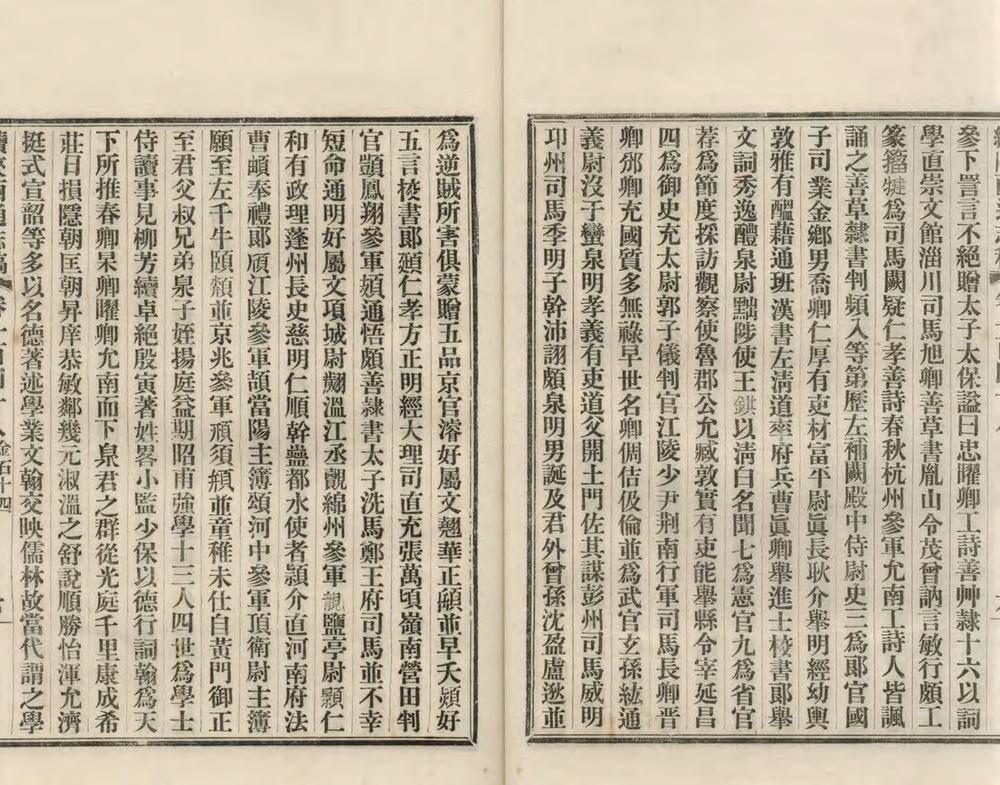 參下詈言不絕贈太子太保謚曰忠曜卿工詩善艸隷十六以詞
學直崇文館淄川司馬旭卿善草書胤山令茂曾訥言敏行頗工
篆籀犍為司馬闕疑仁孝善詩春秋杭州參軍允南工詩人皆諷
誦之善草隸書判頻入等第歷左補闕殿中侍尉史三為郎官國
子司業金鄉男喬卿仁厚有吏材富平尉眞長耿介舉明經幼輿
敦雅有醞藉通班漢書左清道率府兵曹眞卿舉進士校書郎舉
文詞秀逸醴泉尉黜陟使王鉷以清白名聞七為憲官九為省官
荐為節度採訪觀察使魯郡公允臧敦實有吏能舉縣令宰延昌
四為御史充太尉郭子儀判官江陵少尹荆南行軍司馬長卿晋
卿邠卿充國質多無祿早世名卿倜佶伋倫並為武官玄孫紘通
義尉沒于蠻泉明孝義有吏道父開土門佐其謀彭州司馬威明
邛州司馬季明子幹沛詡頗泉明男誕及君外曾孫沈盈盧逖並
為逆賊所害俱蒙贈五品京官濬好屬文翹華正顱並早夭熲好
五言校書郎頲仁孝方正明經大理司直充張萬頃嶺南營田判
官顗鳳翔參軍頍通悟頗善隷書太子洗馬鄭王府司馬並不幸
短命通明好屬文項城尉翽溫江丞覿綿州參軍靚鹽亭尉顥仁
和有政理蓬州長史慈明仁順幹蠱都水使者頴介直河南府法
曹頔奉禮郎頎江陵參軍頡當陽主簿頌河中參軍頂衛尉主簿
願至左千牛頤頮並京兆參軍頑須頯並童稚未仕自黃門御正
至君父叔兄弟泉子姪揚庭益期昭甫強學十三人四世為學士
侍讀事見柳芳續卓絕殷寅著姓畧小監少保以德行詞翰為天
下所推春卿杲卿曜卿允南而下泉君之群從光庭千里康成希
莊日損隱朝匡朝昇庠恭敏鄰幾元淑溫之舒說順勝怡渾允濟
挺式宣韶等多以名德著述學業文翰交映儒林故當代謂之學